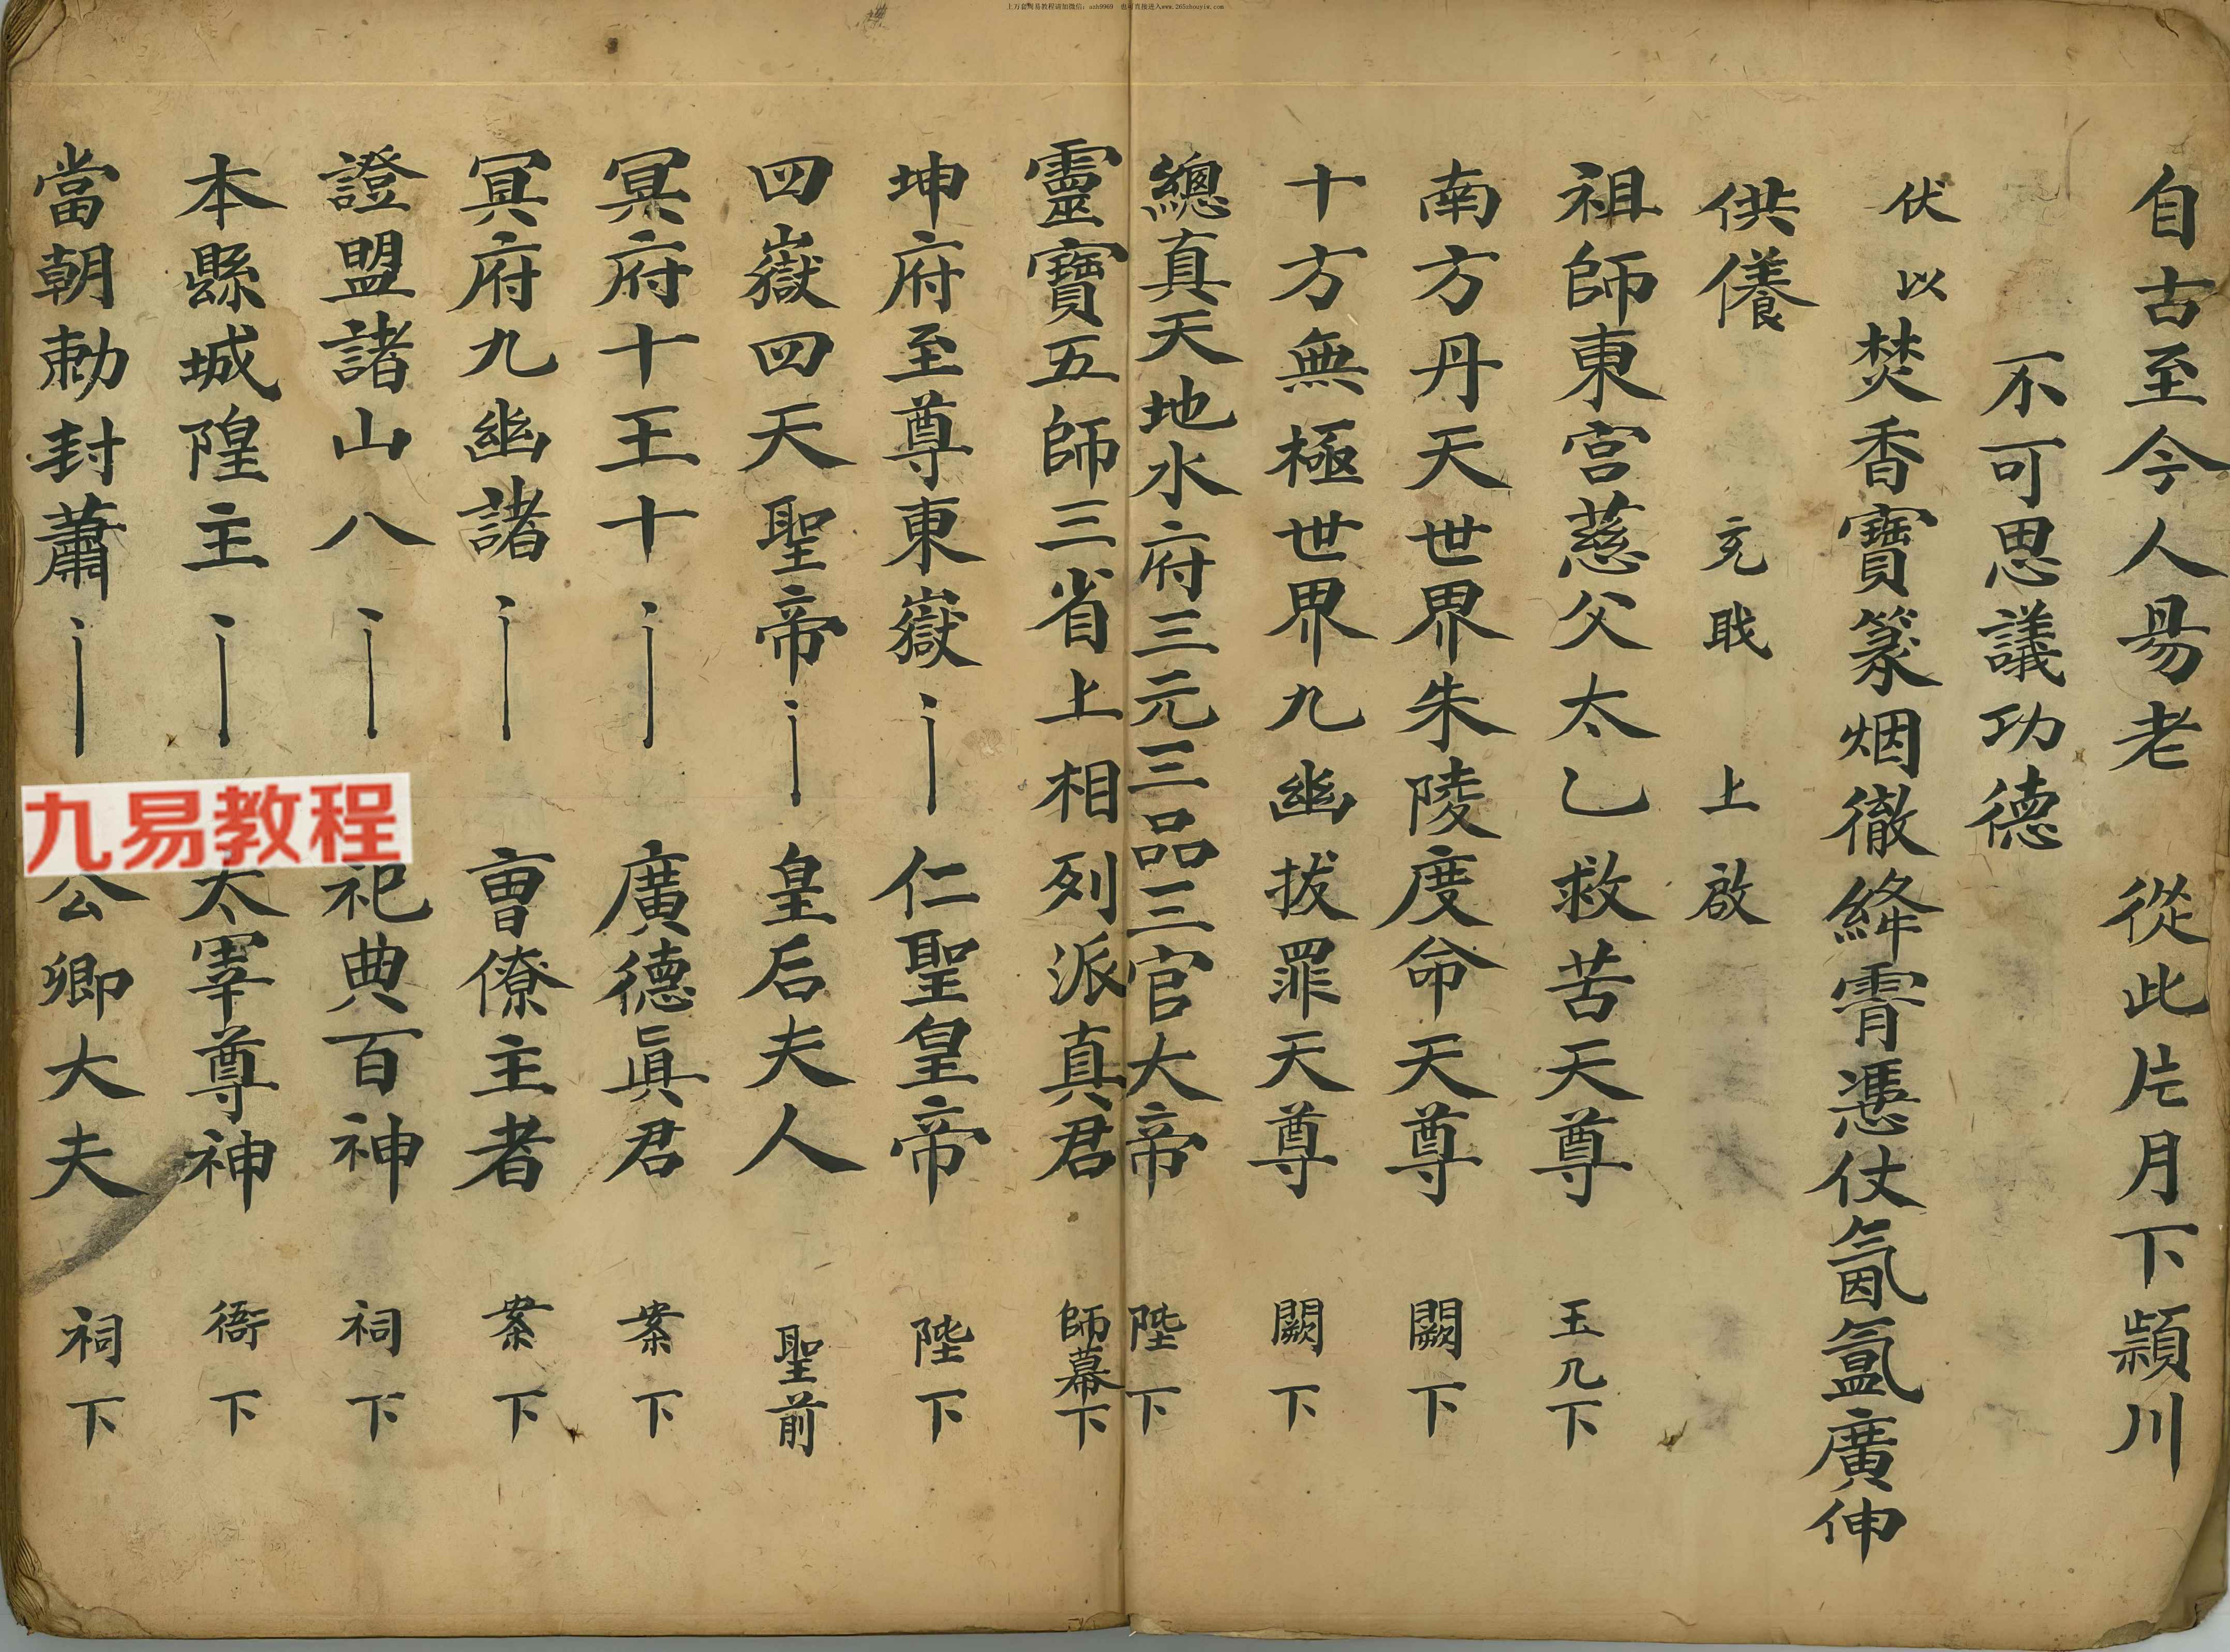 上万套周易教程请加微信：azh9969 也可直接进入www.265zhouyiw.com
自古至今人昜老 從此片月下顯川
不可思議功德
伏以 焚香寶篆烟徹絳霄憑仗氤氳廣伸
供儀 㐬戢 上啟
祖師東宮慈父太乙救苦天尊 玉几下
南方丹天世界朱陵度命天尊 闕下
十方無極世界九幽拔罪天尊 闕下
總真天地水府三元三品三官大帝 陛下
靈寶五師三省上相列派真君 師幕下
坤府至尊東嶽 仁聖皇帝 陛下
四嶽四天聖帝 皇后夫人 聖前
冥府十王十 廣德眞君 案下
冥府九幽諸 曹僚主者 案下
證盟諸山八 祀典百神 祠下
本縣城隍主 太宰尊神 衙下
當朝勅封蕭 公卿大夫 祠下
九易教程